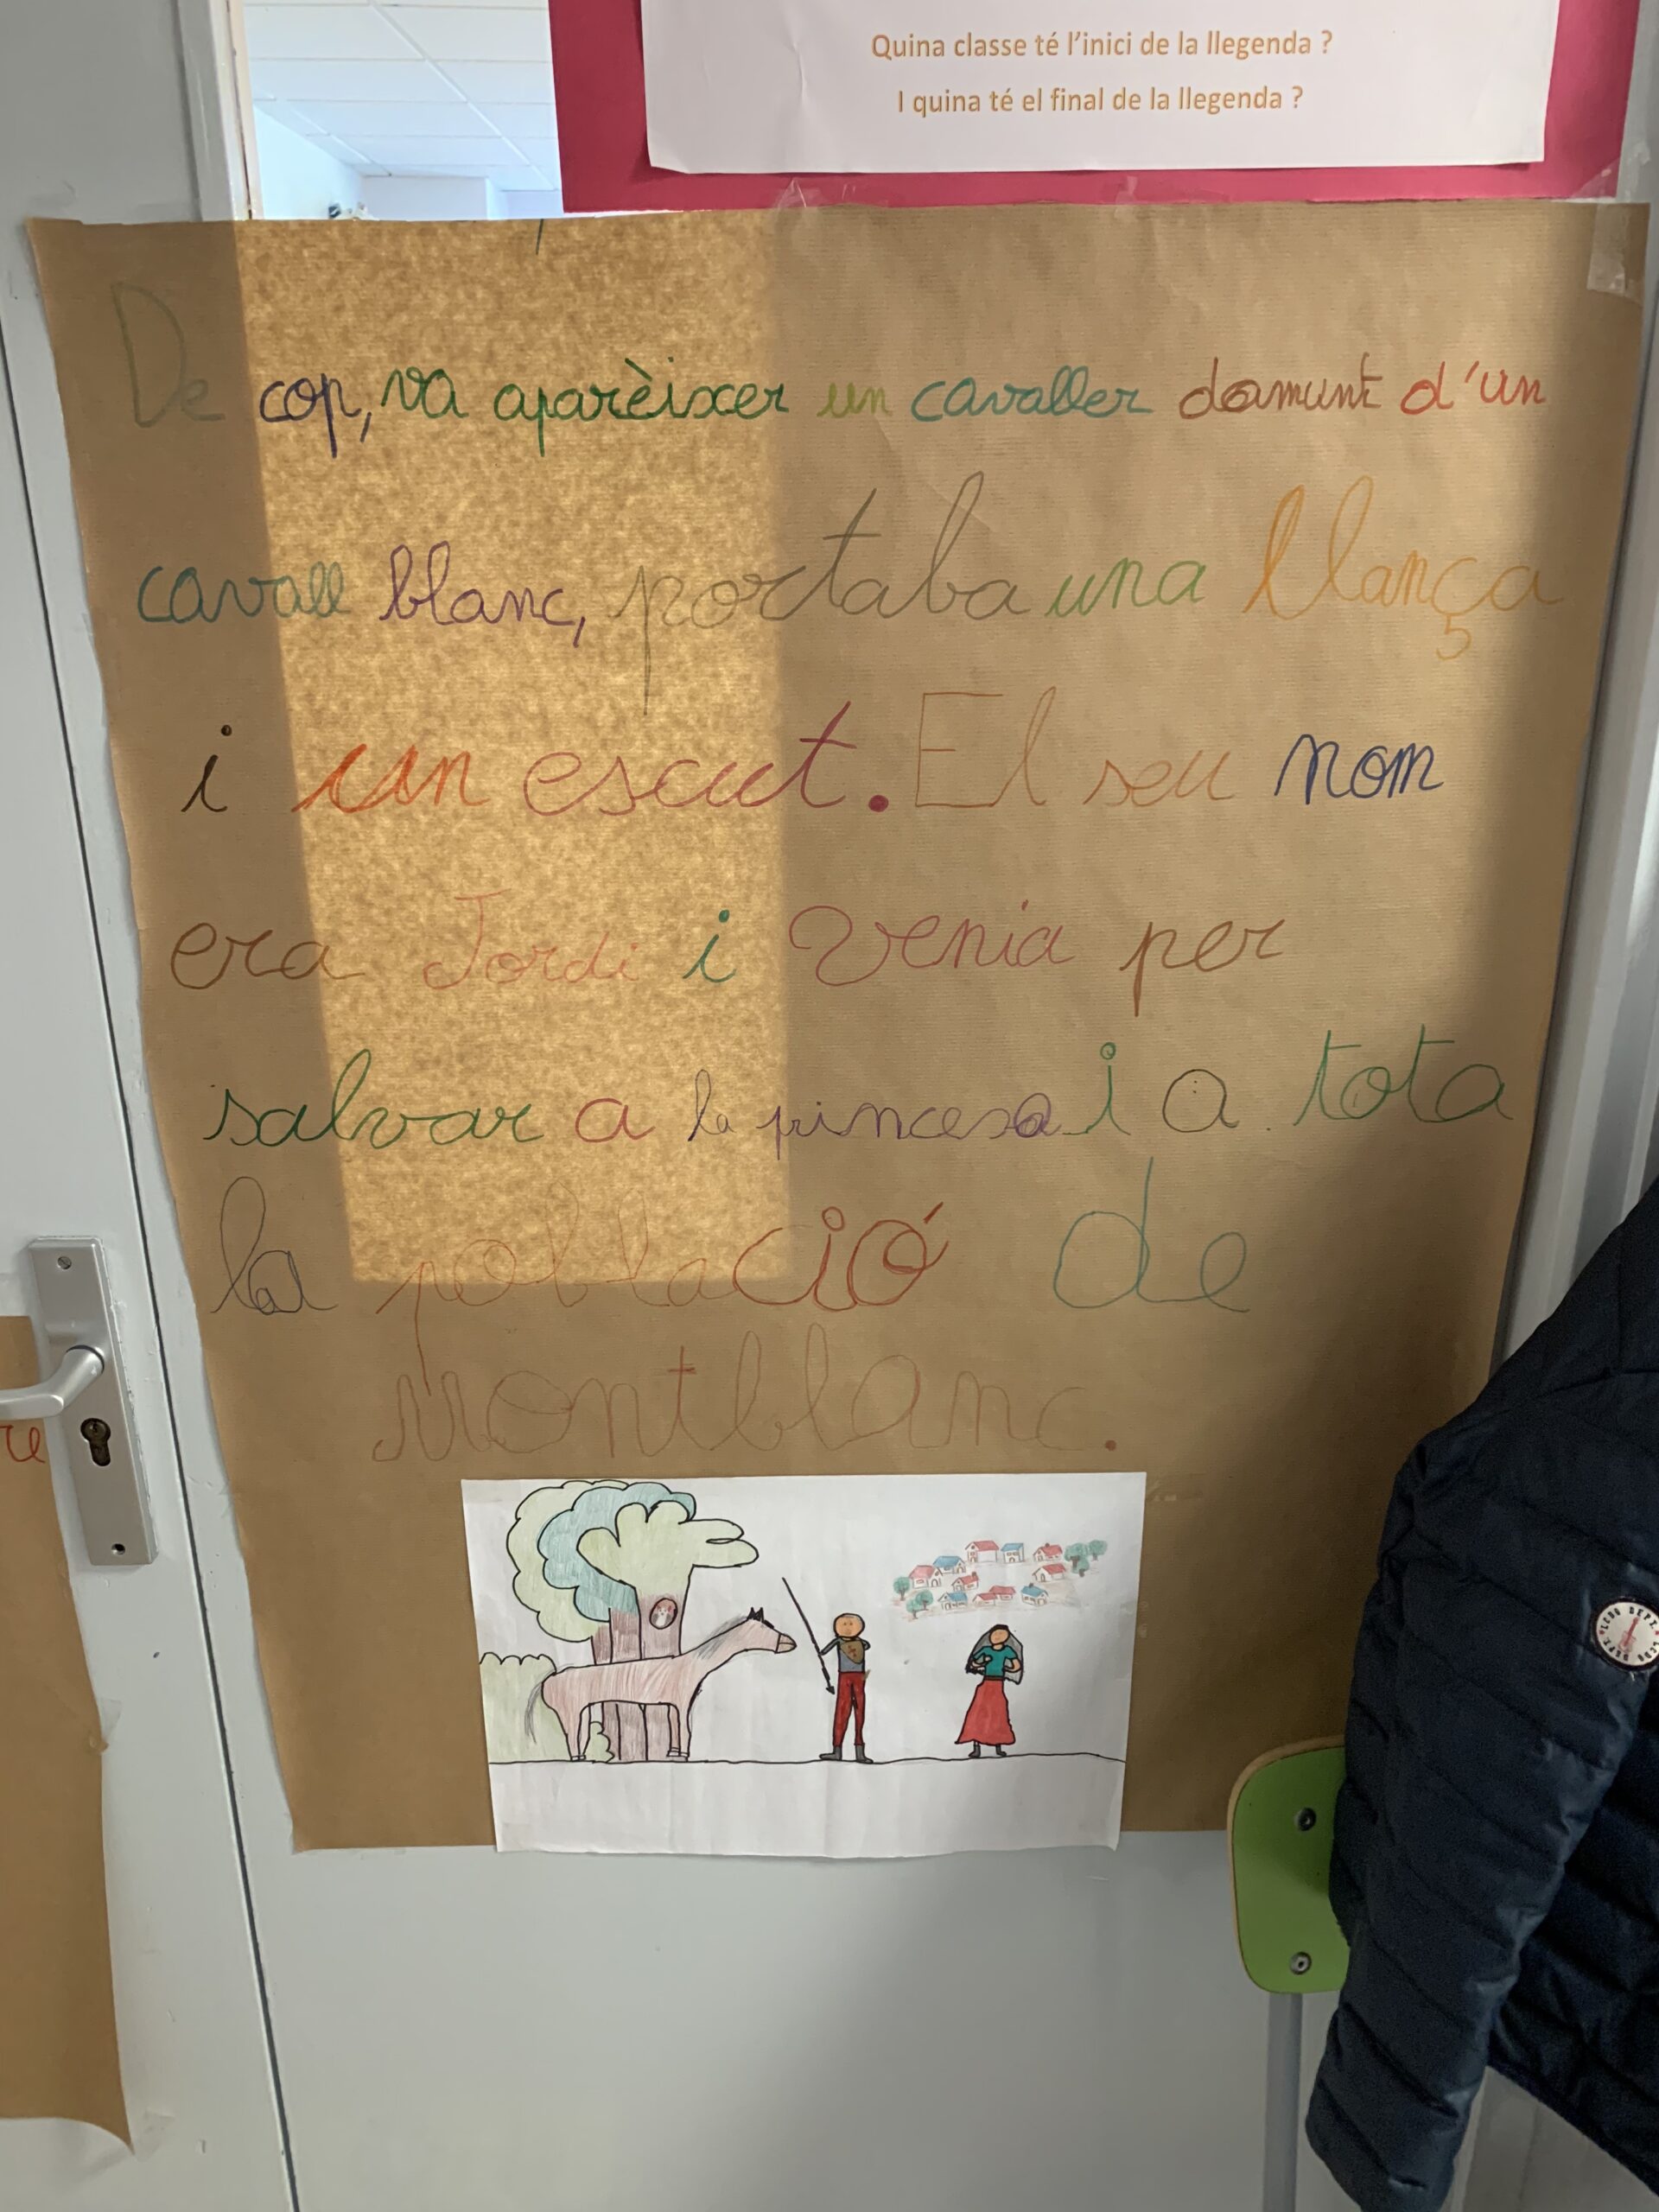 Quina classe té l'inici de la llegenda ?
I quina té el final de la llegenda ?
De cop, va aparèixer un cavaller damunt d'un
cavall blanc, portaba una llança
i un escut. El seu nom
era Jordi i venia per
salvar a la princesa i a tota
la població de
Montblanc.